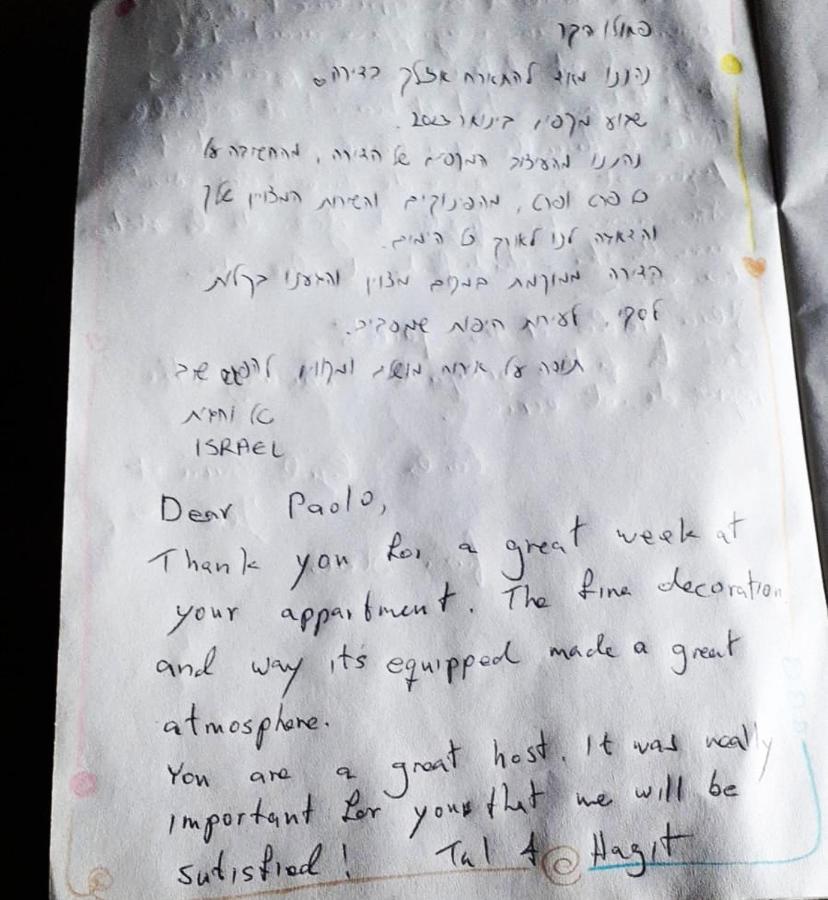 פאולו היקר
נהננו מאוד להתארח אצלך בדירה
שבוע מקסים בינואר 2023.
נהננו מהעיצוב המקסים של הדירה, מהחשיבה על
כל פרט ופרט, מהפינוקים והשירות המצויין שלך
והדאגה לנו לאורך כל הימים.
הדירה ממוקמת במקום מצוין והגענו בקלות
לסקי, לעיירות היפות שמסביב.
תודה על אירוח מושלם ומקווים להפגש שוב
טל וחגית
ISRAEL
Dear Paolo,
Thank you for a great week at
your appartment. The fine decoration
and way its equipped made a great
atmosphere.
You are a great host. It was really
important for you that we will be
sutisfied! Tal & Hagit